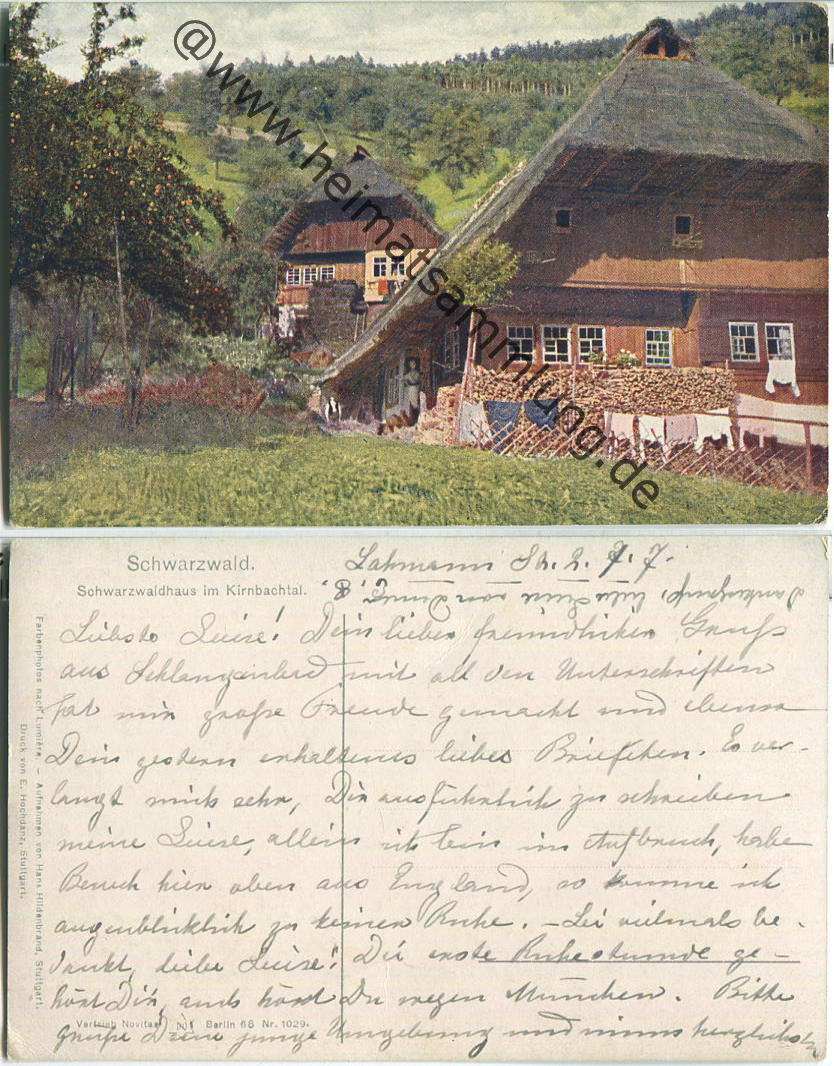 @www.heimatsammlung.de
Schwarzwald.
Schwarzwaldhaus im Kirnbachtal.
7. 7.
Liebste Luise! Dein lieber freundlicher Gruß
aus Schlangenbad mit all den Unterschriften
hat mir große Freude gemacht und ebenso
Dein gestern erhaltenes liebes Briefchen. Es ver-
langt mich sehr, Dir ausführlich zu schreiben
meine Luise, allein ich bin im Aufbruch, habe
Besuch hier oben aus England, so komme ich
augenblicklich zu keiner Ruhe. - Sei vielmals be-
dankt, liebe Luise! Die erste Ruhestunde ge-
hört Dir, auch hörst Du wegen München. Bitte
grüße Deine junge Umgebung und nimm herzlichst
Farbenphotos nach Lumière. - Aufnahmen von Hans Hildenbrand, Stuttgart.
Druck von E. Hochdanz, Stuttgart.
Vertrieb Novitas Berlin 68 Nr. 1029.